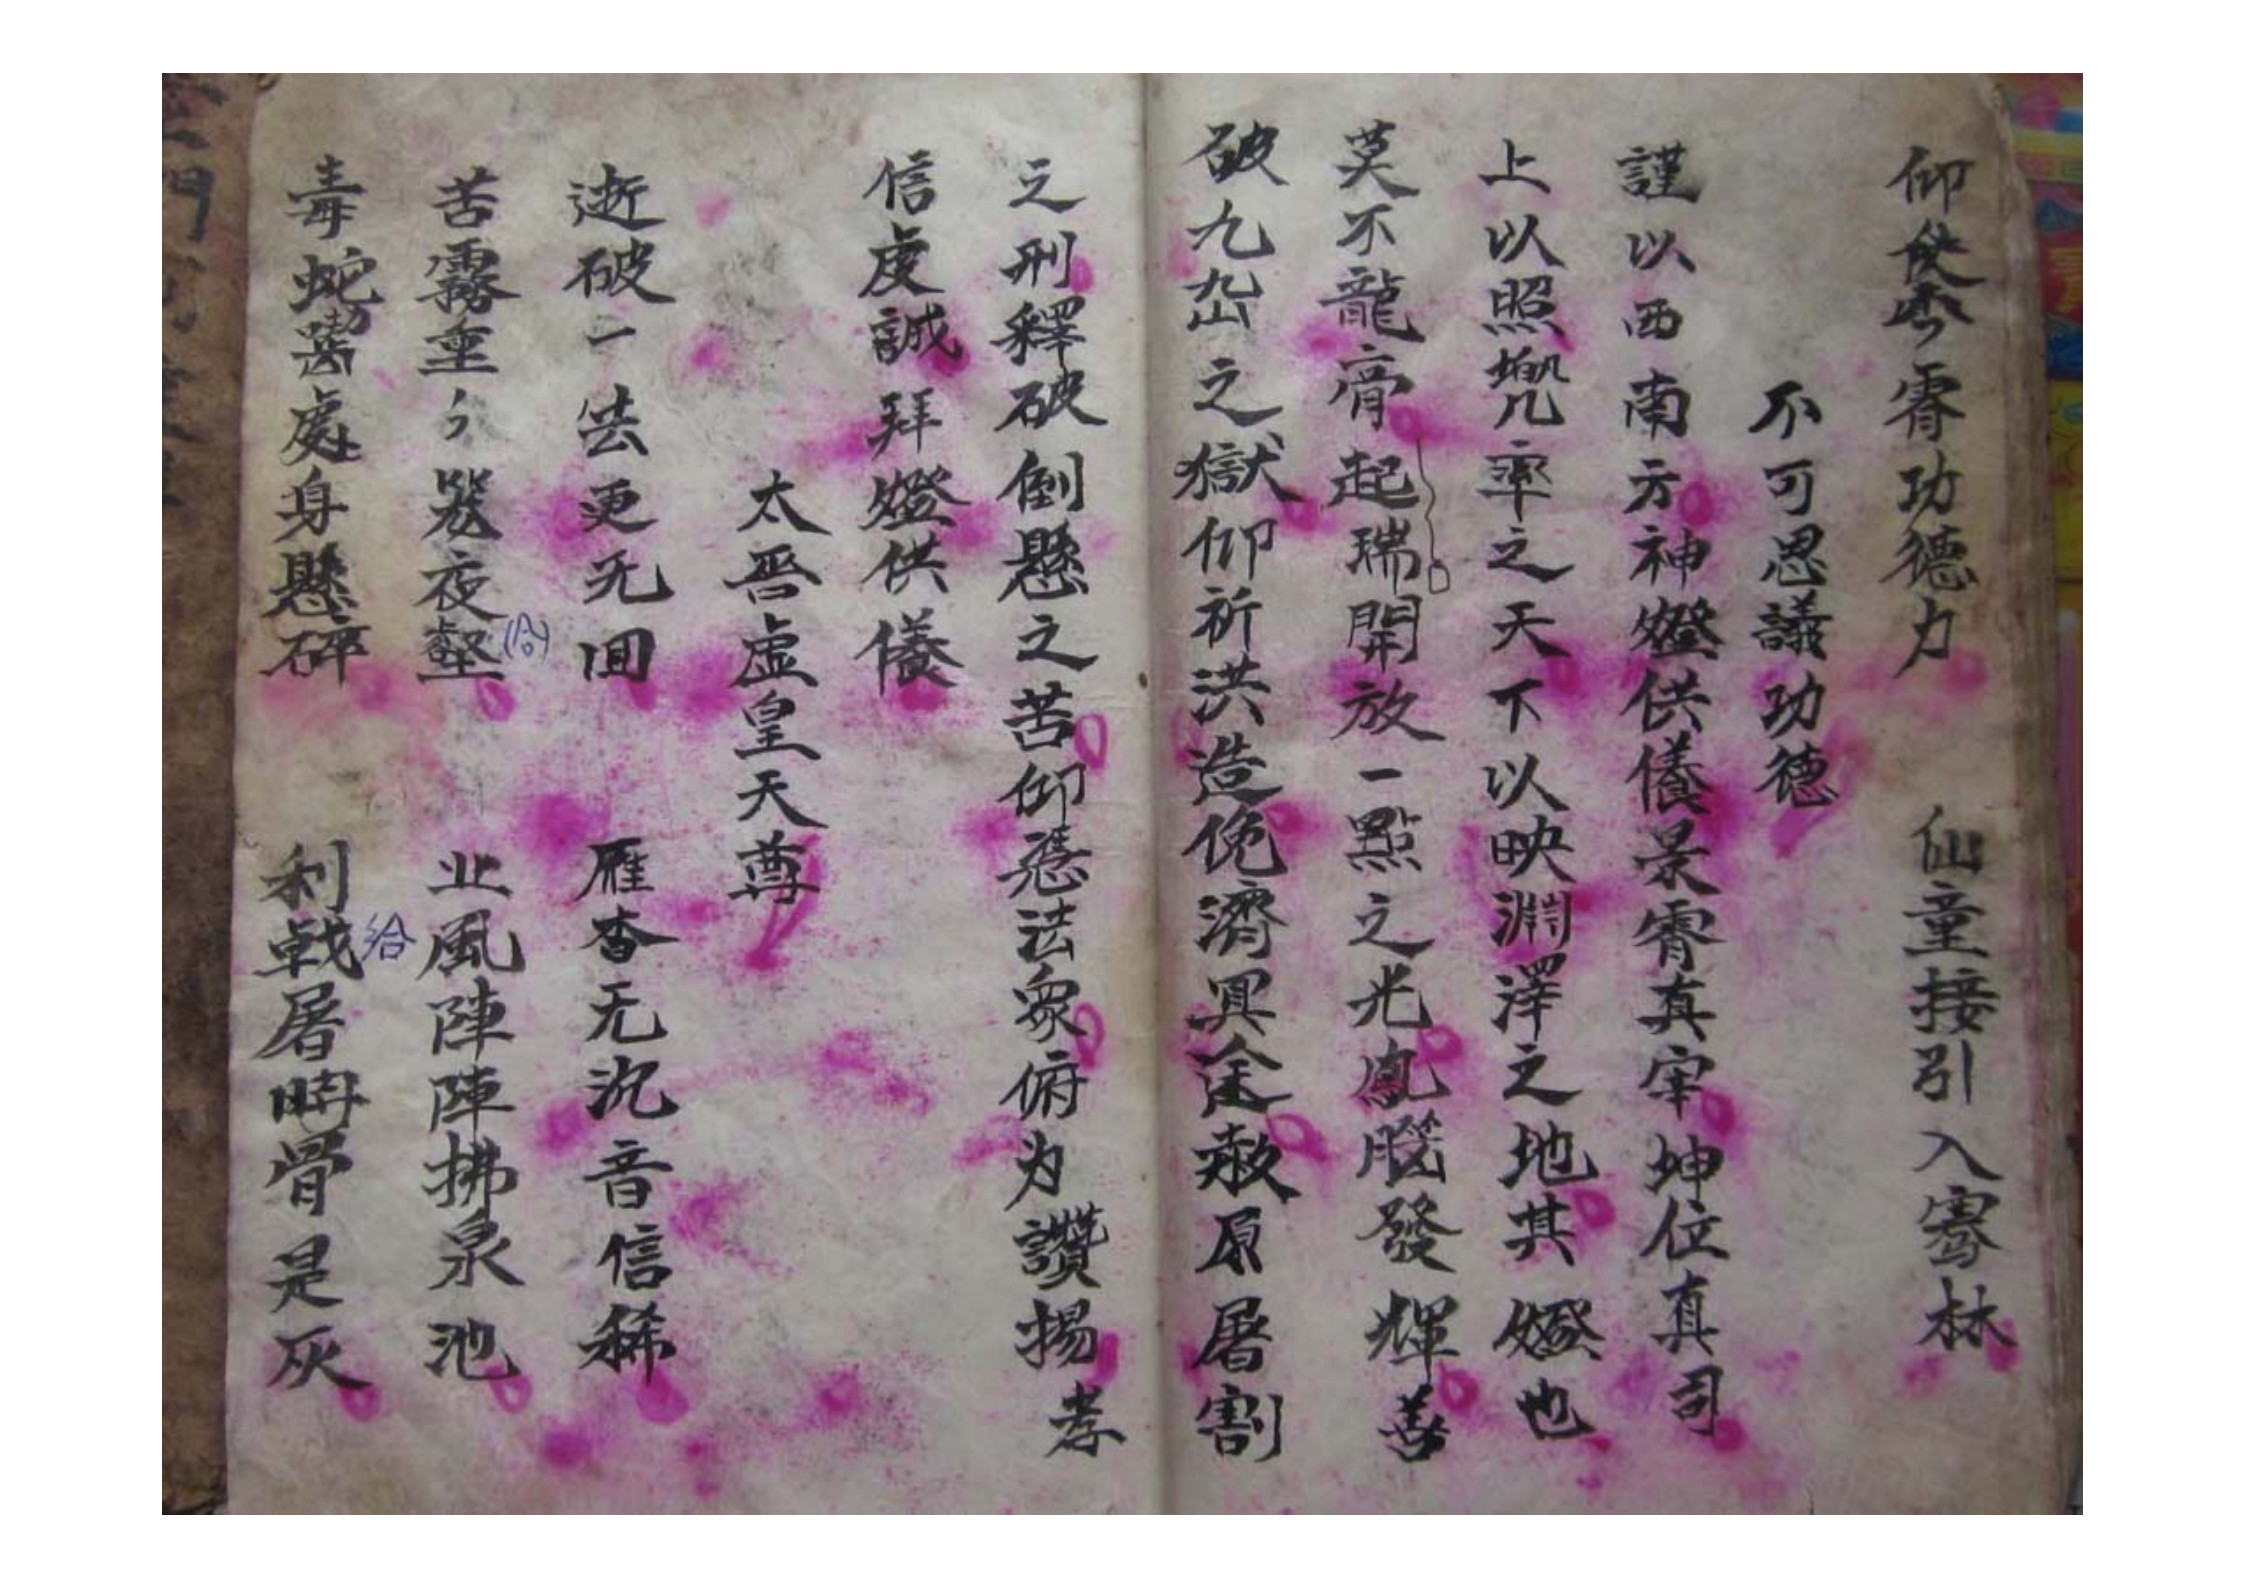 仰仗 霄功德力 仙童接引入騫林
不可思議功德
謹以西南方神燈供儀景霄真宰坤位真司
上以照兜率之天下以映淵澤之地其燈也
莫不龍膏起瑞開放一點之光鳳腦發輝善
破九幽之獄仰祈洪造俛濟冥途赦原屠割
之刑釋破倒懸之苦仰憑法眾俯为讚揚孝
信虔誠拜燈供儀
太晋虛皇天尊
逝破一去更无回 雁杳无沉音信稀
苦霧重々 夜壑 业風陣陣拂泉池
(合)
毒蛇囓處身懸碎 利戟屠時骨是灰
给